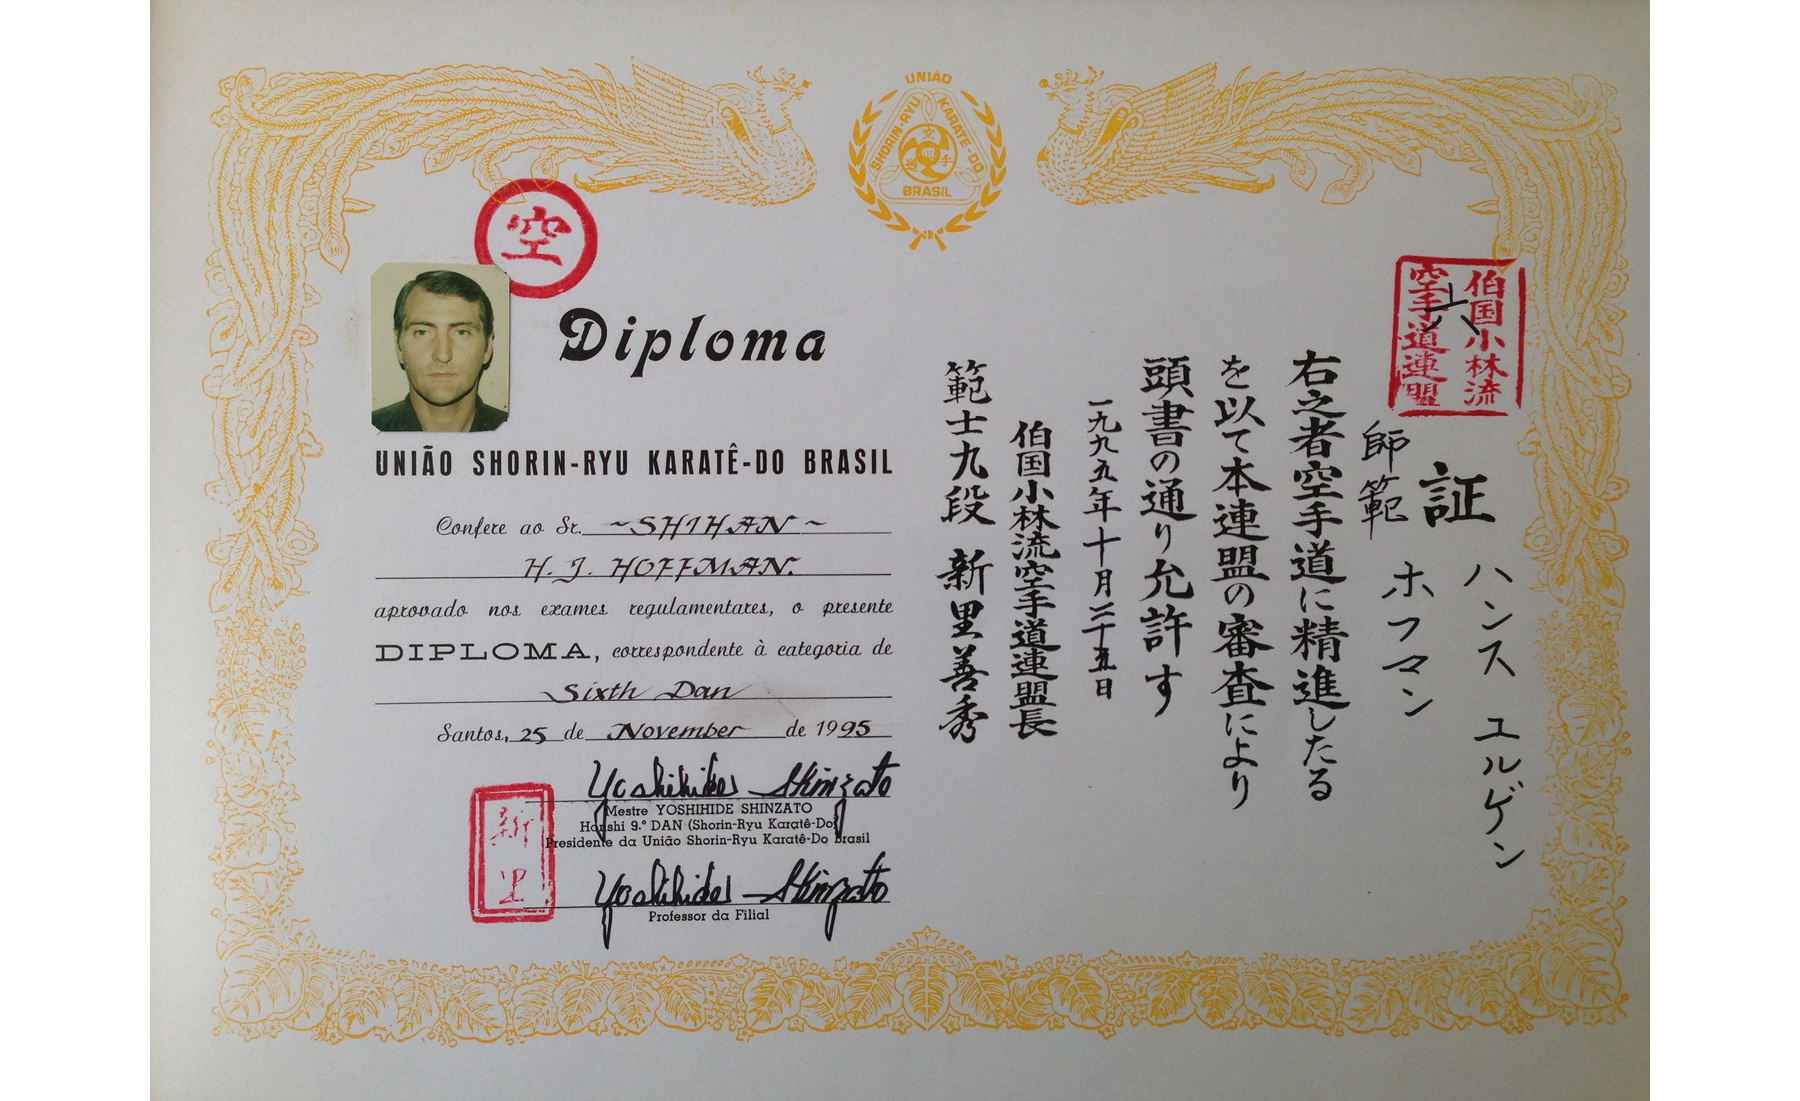 UNIÃO
SHORIN-RYU KARATE DO
BRASIL
空
Diploma
UNIÃO SHORIN-RYU KARATÊ-DO BRASIL
Confere ao Sr. ~SHIHAN~
H. J. HOFFMAN.
aprovado nos exames regulamentares, o presente
DIPLOMA, correspondente à categoria de
Sixth Dan
Santos, 25 de November de 1995
Yoshihide Shinzato
Mestre YOSHIHIDE SHINZATO
Hanshi 9.º DAN (Shorin-Ryu Karatê-Do)
Presidente da União Shorin-Ryu Karatê-Do Brasil
Yoshihide Shinzato
Professor da Filial
新里
伯国小林流
空手道連盟
六
証
ハンス ユルゲン
師範 ホフマン
右之者空手道に精進したる
を以て本連盟の審査により
頭書の通り允許す
一九九五年十月二十五日
伯国小林流空手道連盟長
範士九段 新里善秀